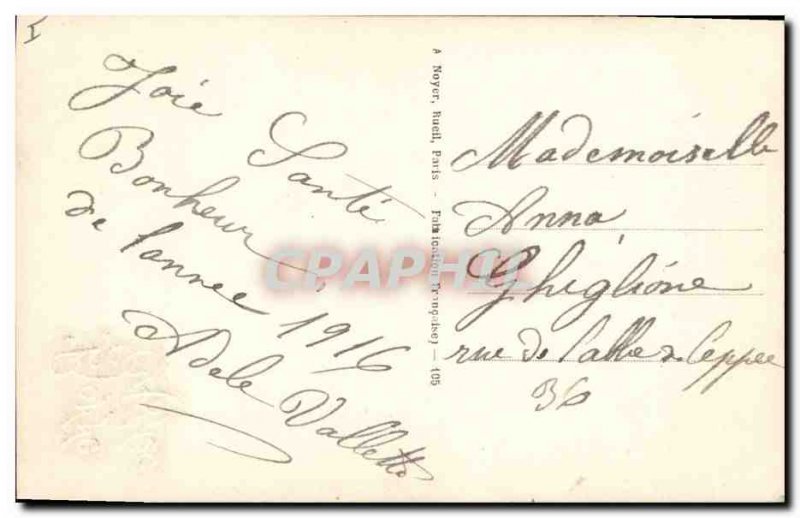 I
Joie
Santé
Bonheur
de l'année 1916
Adele Valletto
A Noyer, Rueil, Paris - Fabrication Française) - 105
Mademoiselle
Anna
Ghiglione
rue de l'abbé de l'eppee
36
CPAPHIL